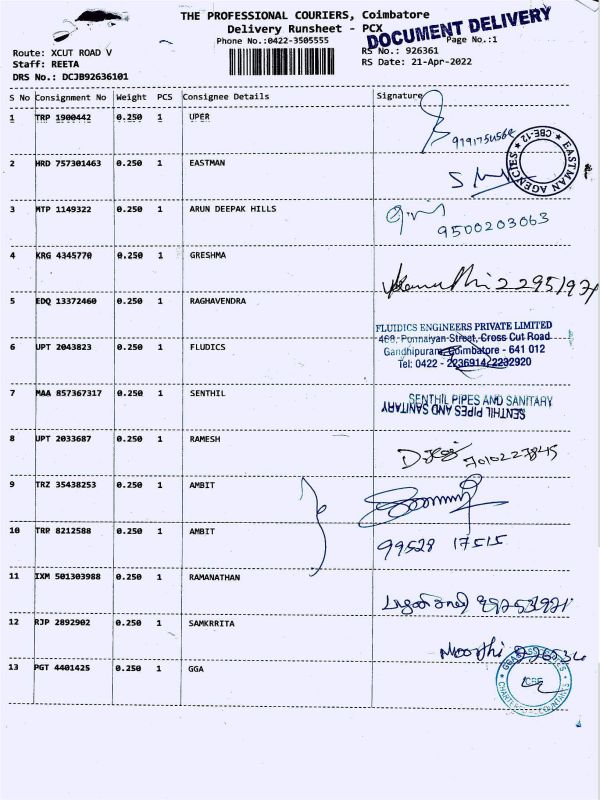 THE PROFESSIONAL COURIERS, Coimbatore
Delivery Runsheet - PCX
DOCUMENT DELIVERY
Phone No.:0422-3505555
Page No.:1
Route: XCUT ROAD V
RS No.: 926361
Staff: REETA
RS Date: 21-Apr-2022
DRS No.: DCJB92636101
S No Consignment No Weight PCS Consignee Details Signature
1 TRP 1900442 0.250 1 UPER
EASTMAN AGENCIES CBE-12
2 HRD 757301463 0.250 1 EASTMAN
3 MTP 1149322 0.250 1 ARUN DEEPAK HILLS
9500203063
4 KRG 4345770 0.250 1 GRESHMA
5 EDQ 13372460 0.250 1 RAGHAVENDRA
FLUIDICS ENGINEERS PRIVATE LIMITED
468, Ponnaiyan Street, Cross Cut Road
6 UPT 2043823 0.250 1 FLUDICS
Gandhipuram, Coimbatore - 641 012
Tel: 0422 - 2236914/2232920
7 MAA 857367317 0.250 1 SENTHIL
SENTHIL PIPES AND SANITARY
SENTHIL PIPES AND SANITARY
8 UPT 2033687 0.250 1 RAMESH
7010227845
9 TRZ 35438253 0.250 1 AMBIT
10 TRP 8212588 0.250 1 AMBIT
99528 17515
11 IXM 501303988 0.250 1 RAMANATHAN
12 RJP 2892902 0.250 1 SAMKRRITA
Moorthi
13 PGT 4401425 0.250 1 GGA
CBE